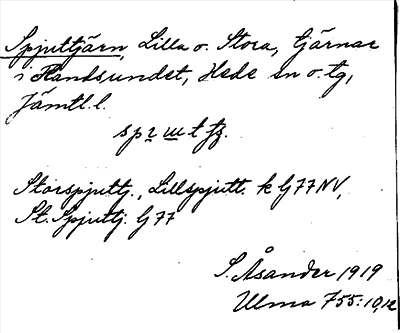 Spjuttjärn, Lilla o. Stora, tjärnar
i Flandsundet, Hede sn o. tg,
Jämtl. l.
Storspjuttj., Lillspjutt. k G77NV,
St. Spjuttj. G77
S. Åsander 1919
Ulma 755:10,12